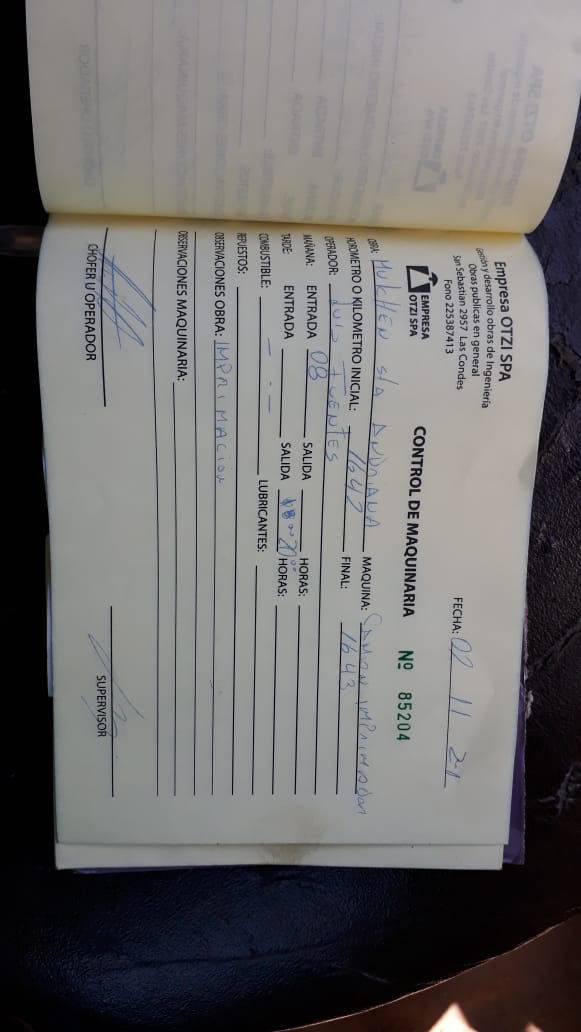 Empresa OTZI SPA
Gestión y desarrollo obras de Ingeniería
Obras publicas en general
San Sebastian 2957 Las Condes
Fono 225387413
FECHA: 02 11 21
EMPRESA
OTZI SPA
CONTROL DE MAQUINARIA Nº 85204
OBRA: MULCHEN S/A ANDRIANA MAQUINA: CAMION IMPRIMADOR
HOROMETRO O KILOMETRO INICIAL: 1642 FINAL: 1643
OPERADOR: LUIS FUENTES
MAÑANA: ENTRADA 08 SALIDA HORAS:
TARDE: ENTRADA SALIDA 20:00 HORAS:
COMBUSTIBLE: — . — LUBRICANTES:
REPUESTOS:
OBSERVACIONES OBRA: IMPRIMACION
OBSERVACIONES MAQUINARIA:
CHOFER U OPERADOR SUPERVISOR